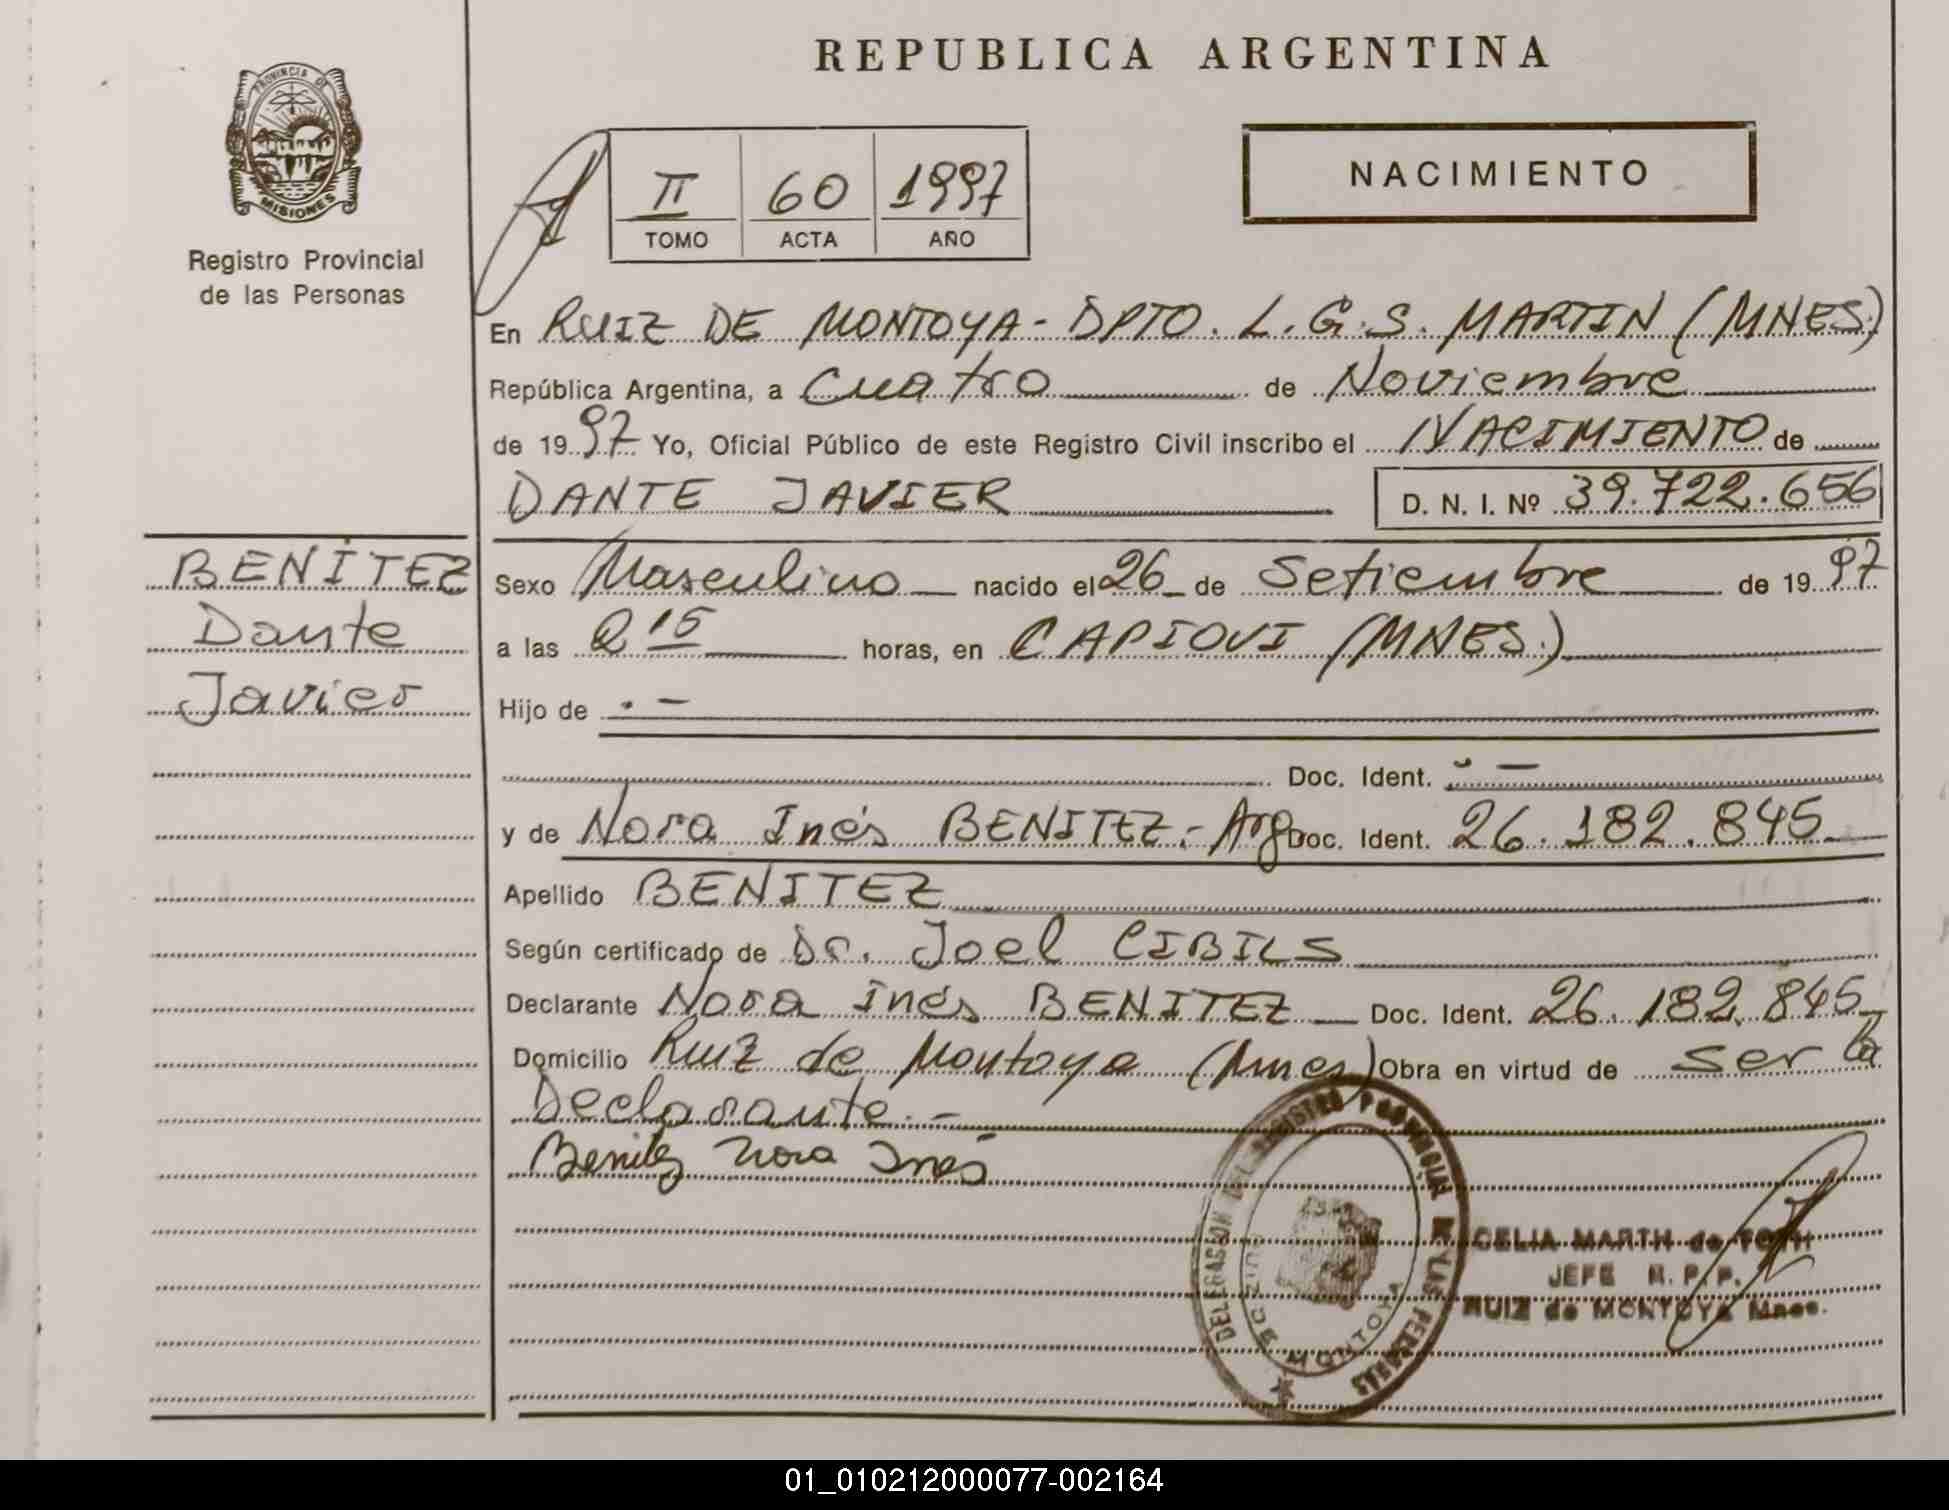 REPUBLICA ARGENTINA
PROVINCIA DE
MISIONES
Registro Provincial
de las Personas
NACIMIENTO
II 60 1997
TOMO ACTA AÑO
En RUIZ DE MONTOYA - DPTO. L.G.S. MARTIN (MNES.)
República Argentina, a Cuatro de Noviembre
de 1997 Yo, Oficial Público de este Registro Civil inscribo el NACIMIENTO de
DANTE JAVIER D. N. I. Nº 39.722.656
BENÍTEZ
Dante
Javier
Sexo Masculino nacido el 26 de Setiembre de 1997
a las 2 15 horas, en CAPIOVI (MNES.)
Hijo de . -
Doc. Ident. . -
y de Nora Inés BENITEZ.- Arg Doc. Ident. 26.182.845
Apellido BENITEZ
Según certificado de Dr. Joel CIBILS
Declarante Nora Inés BENITEZ Doc. Ident. 26.182.845
Domicilio Ruiz de Montoya (Mnes) Obra en virtud de ser la
Declarante.-
Benitez Nora Inés
DELEGACION DEL REGISTRO PROVINCIAL DE LAS PERSONAS
RUIZ DE MONTOYA
CELIA MARTH de TOTH
JEFE R. P. P.
RUIZ de MONTOYA Mnes.
01_010212000077-002164